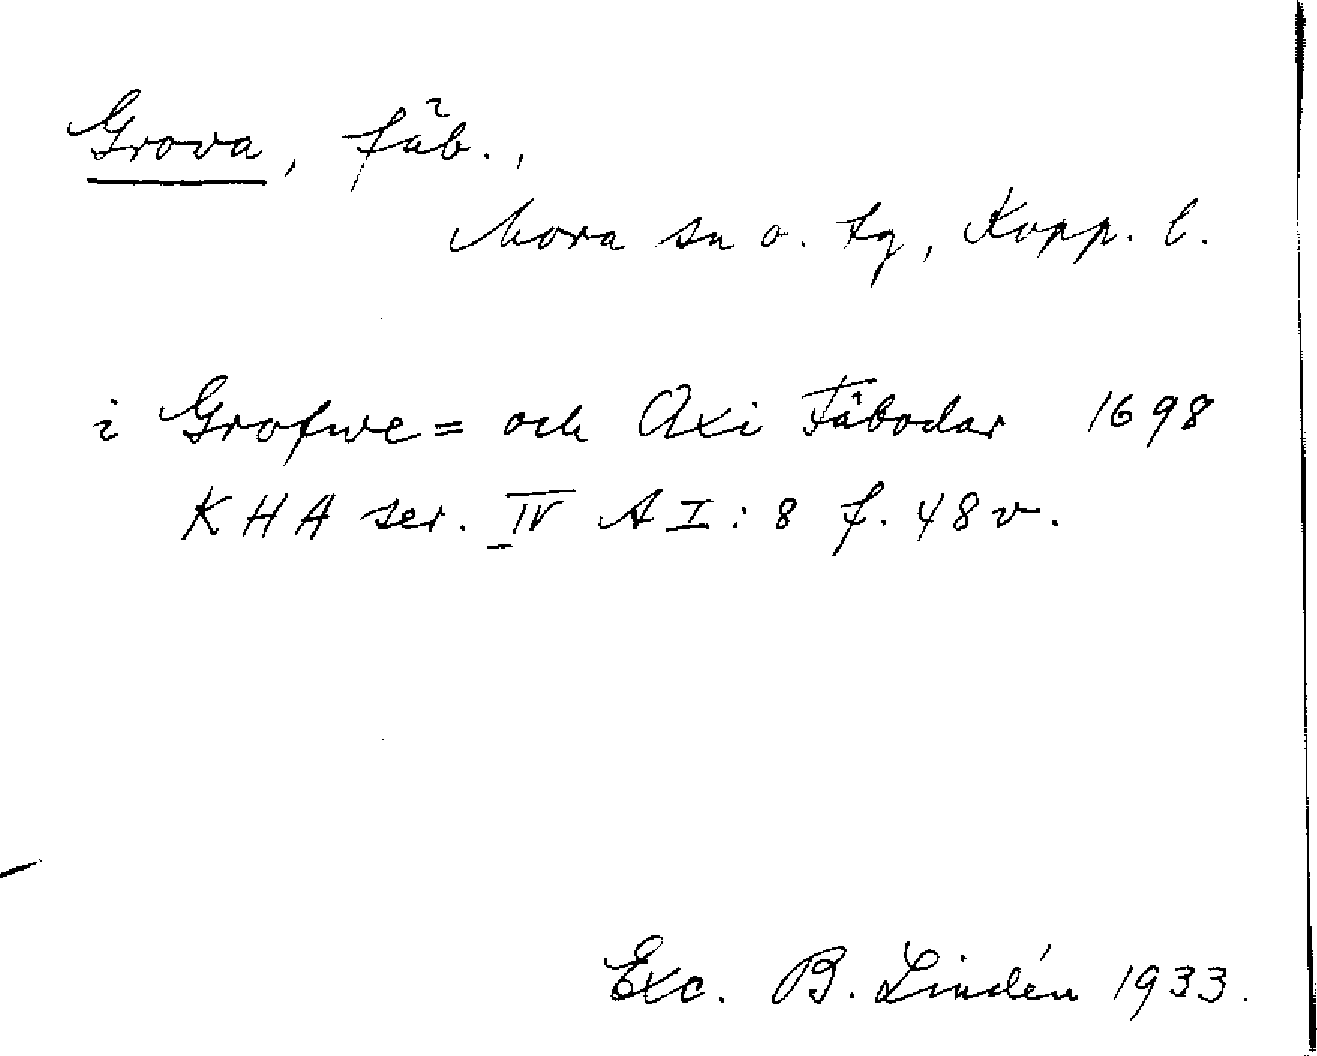 Grova, fäb.,
Mora sn o. tg, Kopp. l.
i Grofwe= och Axi Fäbodar 1698
KHA ser. IV A I: 8 f. 48v.
Exc. B. Lindén 1933.